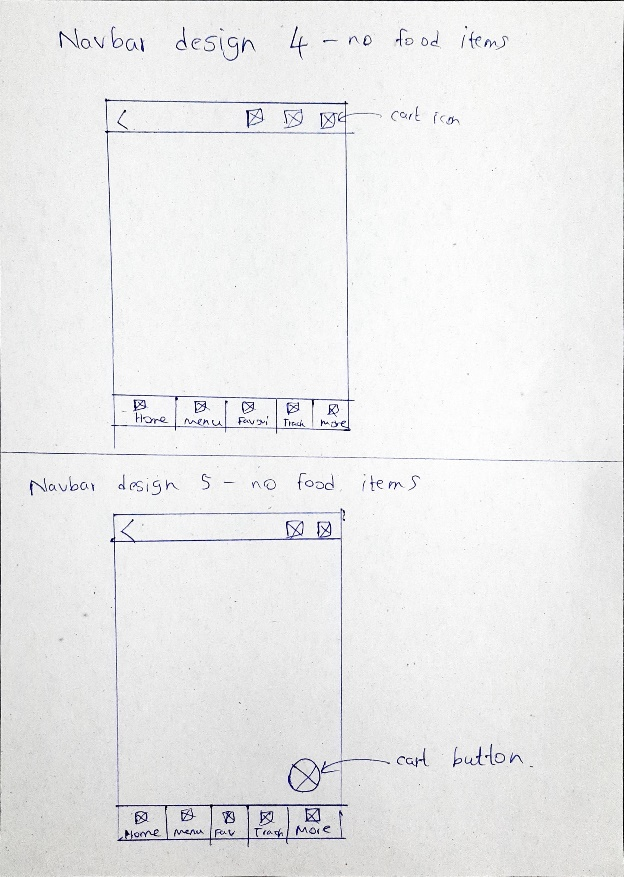 Navbar design 4 - no food items
cart icon
Home Menu Favori Track More
Navbar design 5 - no food items
cart button
Home Menu Fav Track More